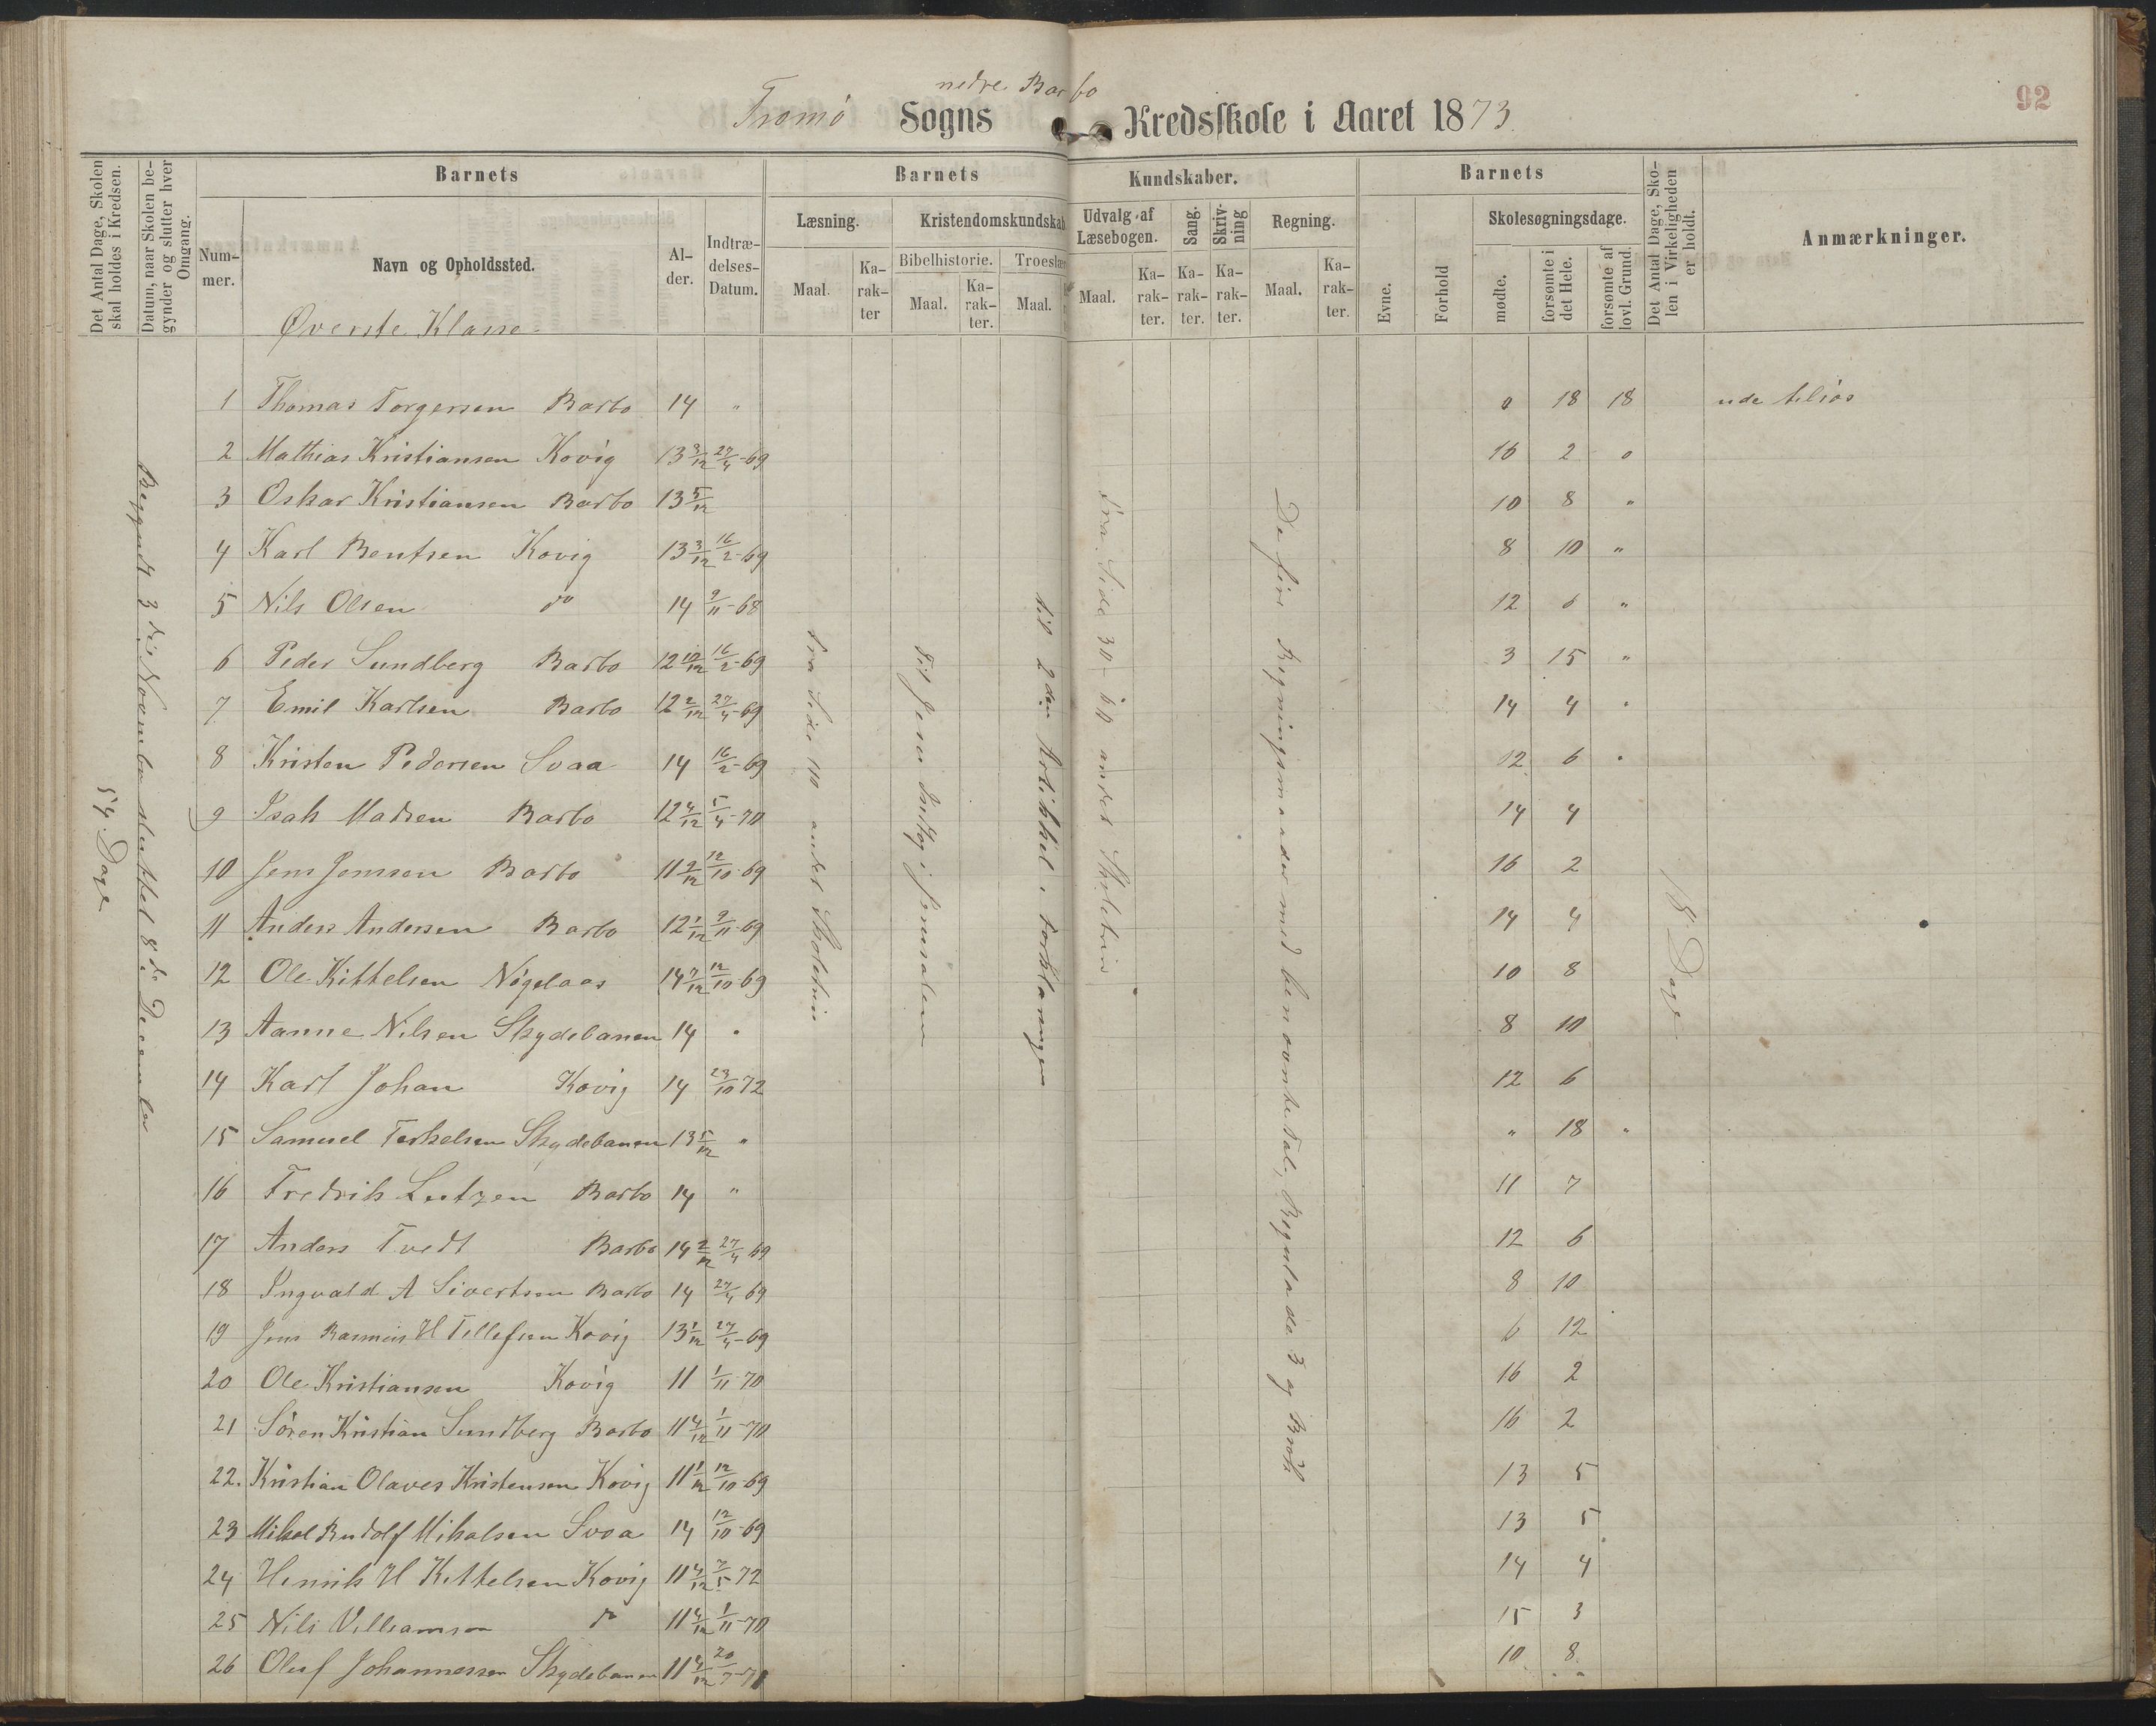 nedre Barbo
Tromö Sogns Kredsskole i Aaret 1873.
92
Det Antal Dage, Skolen skal holdes i Kredsen.
Datum, naar Skolen begynder og slutter hver Omgang.
Barnets
Barnets
Kundskaber.
Barnets
Det Antal Dage, Skolen i Virkeligheden er holdt.
Anmærkninger.
Nummer.
Navn og Opholdssted.
Alder.
Indtrædelses-Datum.
Læsning.
Kristendomskundskab
Udvalg af Læsebogen.
Sang.
Skrivning
Regning.
Skolesøgningsdage.
Bibelhistorie.
Troeslær
Maal.
Karakter
Maal.
Karakter.
Maal.
Maal.
Karakter.
Karakter.
Karakter.
Maal.
Karakter.
Evne.
Forhold
mødte.
forsømte i det Hele.
forsømte af lovl. Grund.
Øverste Klasse
1 Thomas Torgersen Barbo 14 " 0 18 18 ude tilsös
2 Mathias Kristiansen Kovig 13 3/12 27/4-69 16 2 0
3 Oskar Kristiansen Barbo 13 5/12 10 8 "
4 Karl Bentsen Kovig 13 3/12 16/2-69 8 10 "
5 Nils Olsen do 14 9/11-68 12 6 "
6 Peder Sundberg Barbo 12 10/12 16/2-69 3 15 "
7 Emil Karlsen Barbo 12 2/12 27/4-69 14 4 "
8 Kristen Pedersen Svaa 14 16/2-69 12 6 "
9 Isak Madsen Barbo 12 4/12 5/4-70 14 4
10 Jens Jenssen Barbo 11 9/12 12/10-69 16 2
11 Anders Andersen Barbo 12 1/12 9/11-69 14 4
12 Ole Kittelsen Nögelaas 14 7/12 12/10-69 10 8
13 Aanne Nilsen Skydebanen 14 " 8 10
14 Karl Johan Kovig 14 23/10 72 12 6
15 Samuel Terkelsen Skydebanen 13 5/12 " " 18 "
16 Fredrik Lutzen Barbo 14 " 11 7
17 Anders Tvedt Barbo 14 2/12 27/4 69 12 6
18 Ingvald A Sivertsen Barbo 14 27/4 69 8 10
19 Jens Rasmus H Tellefsen Kovig 13 1/12 27/4-69 6 12
20 Ole Kristiansen Kovig 11 1/11-70 16 2
21 Sören Kristian Sundberg Barbo 11 4/12 1/11-70 16 2
22. Kristian Olaves Kristensen Kovig 11 1/12 12/10-69 13 5
23 Mikal Rudolf Mikalsen Svaa 14 12/10-69 13 5
24 Henrik H Kittelsen Kovig 11 4/12 7/5 72 14 4
25 Nils Villiamsen do 11 4/12 1/11-70 15 3
26 Oluf Johannessen Skydebanen 11 4/12 20/7-71 10 8
54 Dage
Begyndt 3die November sluttet 8de December
fra Side 110 andet Skoletrin
til Jesu Indtog i Jerusalem
til 2den Artikkel i Forklaringen
fra Side 30 - 60 andet Skoletrin
De fire Regningsmaader med benævnte Tal, Regulade 3 og Brøk
18 Dage